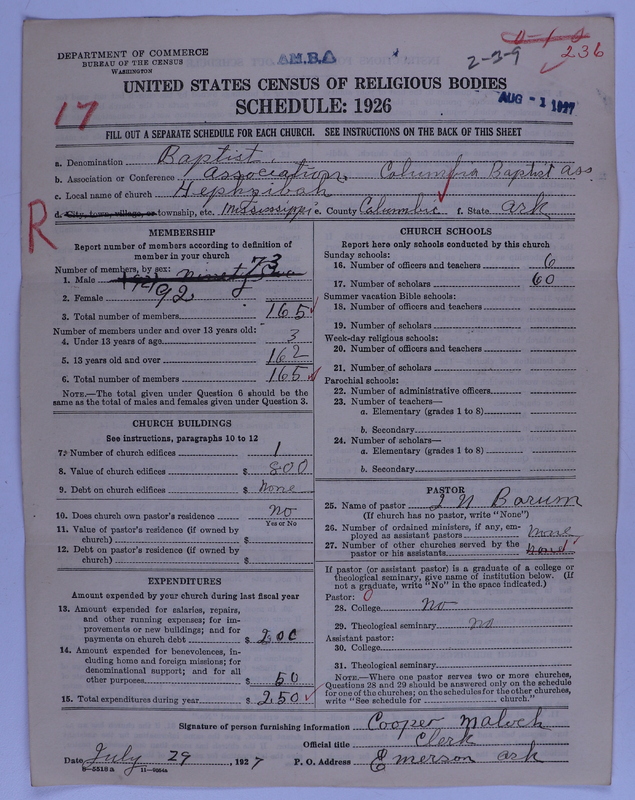 DEPARTMENT OF COMMERCE
BUREAU OF THE CENSUS
WASHINGTON
A.B.A
2-3-9
236
UNITED STATES CENSUS OF RELIGIOUS BODIES
17 SCHEDULE: 1926
AUG -1 1927
FILL OUT A SEPARATE SCHEDULE FOR EACH CHURCH. SEE INSTRUCTIONS ON THE BACK OF THIS SHEET
a. Denomination Baptist
b. Association or Conference Association Columbia Baptist Ass
c. Local name of church Hephzibah
R
d. City, town, village, or township, etc. Mississippi e. County Columbia f. State Ark
MEMBERSHIP
Report number of members according to definition of
member in your church
Number of members, by sex:
1. Male 73
2. Female 92
3. Total number of members 165
Number of members under and over 13 years old:
4. Under 13 years of age 3
5. 13 years old and over 162
6. Total number of members 165
NOTE.—The total given under Question 6 should be
same as the total of males and females given under Question 3.
CHURCH BUILDINGS
See instructions, paragraphs 10 to 12
7. Number of church edifices 1
8. Value of church edifices $ 800
9. Debt on church edifices $ None
10. Does church own pastor's residence No
Yes or No
11. Value of pastor's residence (if owned by
church) $
12. Debt on pastor's residence (if owned by
church) $
EXPENDITURES
Amount expended by your church during last fiscal year
13. Amount expended for salaries, repairs,
and other running expenses; for im-
provements or new buildings; and for
payments on church debt $ 200
14. Amount expended for benevolences, in-
cluding home and foreign missions; for
denominational support; and for all
other purposes $ 50
15. Total expenditures during year $ 250
CHURCH SCHOOLS
Report here only schools conducted by this church
Sunday schools:
16. Number of officers and teachers 6
17. Number of scholars 60
Summer vacation Bible schools:
18. Number of officers and teachers
19. Number of scholars
Week-day religious schools:
20. Number of officers and teachers
21. Number of scholars
Parochial schools:
22. Number of administrative officers
23. Number of teachers—
a. Elementary (grades 1 to 8)
b. Secondary
24. Number of scholars—
a. Elementary (grades 1 to 8)
b. Secondary
PASTOR
25. Name of pastor J N Barum
(If church has no pastor, write "None")
26. Number of ordained ministers, if any, em-
ployed as assistant pastors None
27. Number of other churches served by the
pastor or his assistants
If pastor (or assistant pastor) is a graduate of a college or
theological seminary, give name of institution below. (If
not a graduate, write "No" in the space indicated.)
Pastor: 0
28. College No
29. Theological seminary No
Assistant pastor:
30. College
31. Theological seminary
NOTE.—Where one pastor serves two or more churches,
Questions 28 and 29 should be answered only on the schedule
for one of the churches; on the schedules for the other churches,
write "See schedule for church."
Signature of person furnishing information Cooper Maloch
Official title Clerk
Date July 29, 1927 P. O. Address Emerson Ark
8-5518 a 11-9084a